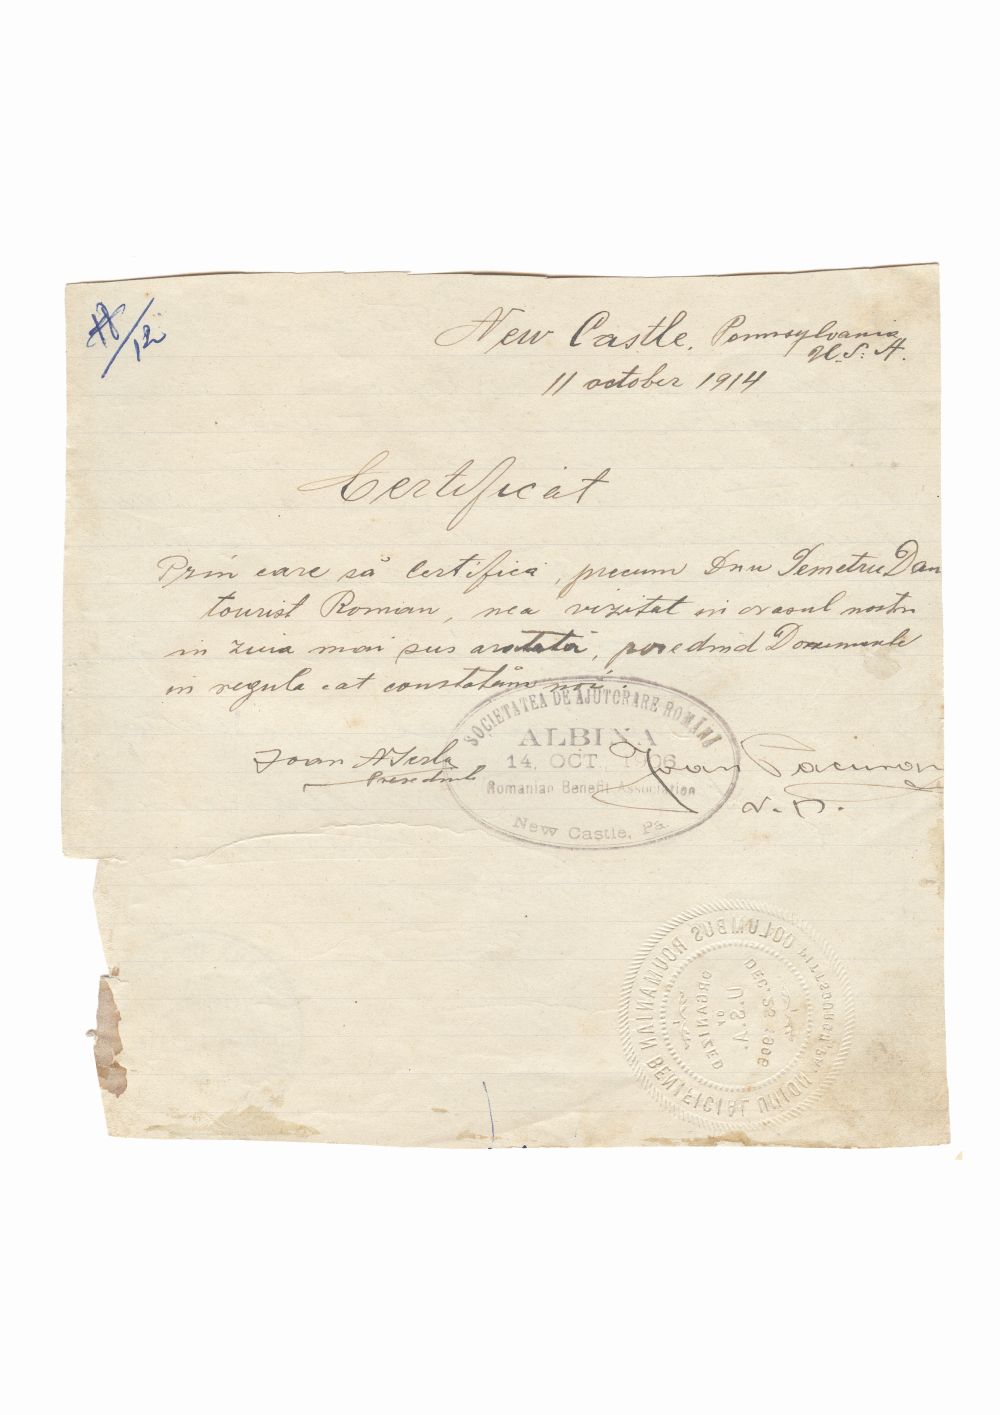 New Castle, Pennsylvania
U. S. A.
11 october 1914
Certificat
Prin care să Certifică, precum Dnu Demetru Dan
tourist Roman, nea vizitat in orasul nostru
in ziua mai sus aratată, posedind Documente
in regula cat constatăm noi.
SOCIETATEA DE AJUTORARE ROMÂNĂ
ALBINA
14. OCT. 1906
Romanian Benefit Association
New Castle, Pa.
Ioan
Presedinte
Ioan Pacurar
COLUMBUS ROUMANIAN BENIFICIAL UNION
ORGANIZED
OF
U.S.A.
DEC. 1906